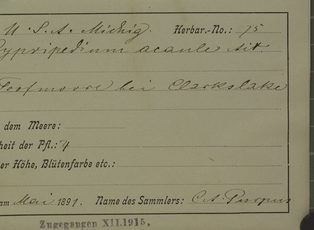 U. S. A. Michig. Herbar.-No.: 75
Cypripedium acaule Ait.
Torfmoore bei Clarkslake
dem Meere:
heit der Pfl.: 4
er Höhe, Blütenfarbe etc.:
am Mai 1891. Name des Sammlers: C. A. Purpus
Zugegangen XII.1915.